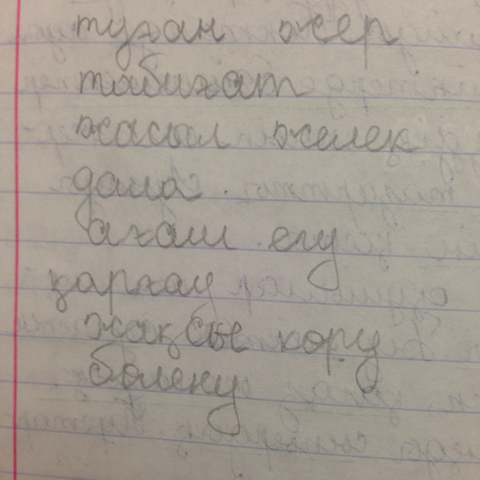 туған жер
табиғат
жасыл желек
дала.
ағаш егу
қарғау
жақсы көру
бөлену